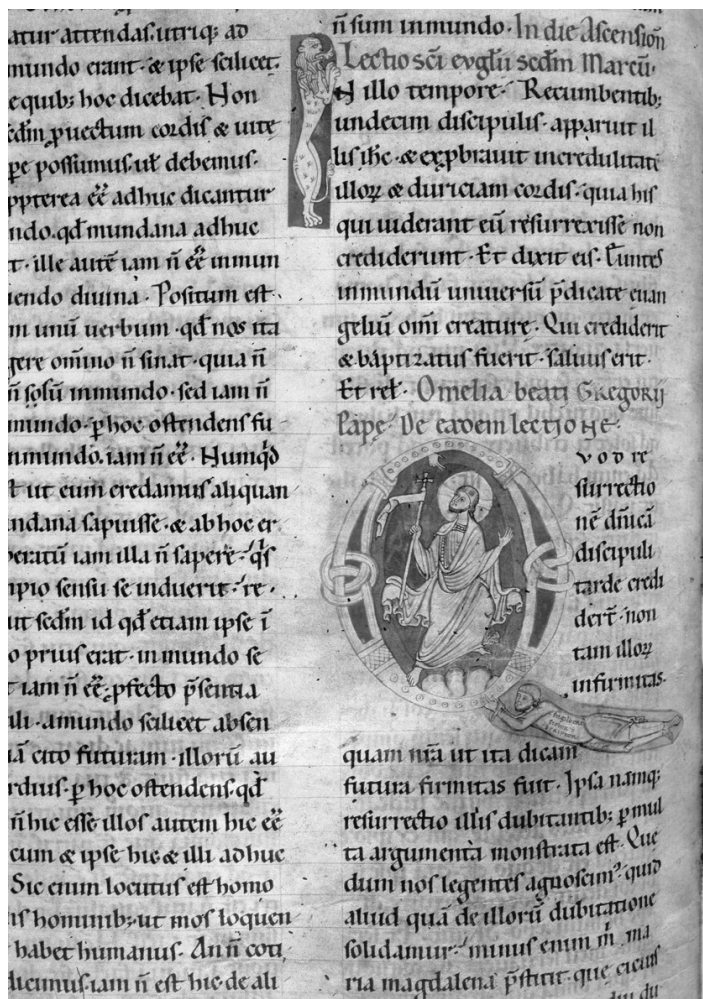 atur attendas. utriq; ad
mundo erant. & ipse scilicet.
e quib; hoc dicebat. Non
sedm puectum cordis & uite
pe possumus. ut debemus.
ppterea ee adhuc dicantur
ndo. qd mundana adhuc
t. ille aute iam n ee in mun
iendo diuina. Positum est.
m unu uerbum. qd nos ita
gere omino n sinat. quia n
n solu in mundo. sed iam n
mundo. p hoc ostendens fu
n mundo. iam n ee. Numqd
t ut eum credamus aliquan
ndana sapuisse. & ab hoc er
peratu iam illa n sapere. qs
ipio sensu se induerit. re.
ut sedm id qd etiam ipse i
o prius erat. in mundo se
t iam n ee. pfecto psentia
ali. a mundo scilicet absen
a cito futuram. illoru au
rdius. p hoc ostendens. qd
n hic esse. illos autem hic ee
cum & ipse hic & illi adhuc
Sic enim locutus est homo
is hominib; ut mos loquen
habet humanus. An n coti
dicimus. iam n est hic. de ali
n sum in mundo. In die Ascension
Lectio sci euglii sedm Marcu.
N illo tempore. Recumbentib;
undecim discipulis. apparuit il
lis ihc. & expbrauit incredulitate
illoꝝ & duriciam cordis. quia his
qui uiderant eu resurrexisse non
crediderunt. Et dixit eis. Euntes
in mundu uniuersu pdicate euan
geliu omi creature. Qui crediderit
& baptizatus fuerit. saluus erit.
Et rel. Omelia beati Gregorii
Pape. De eadem lectione.
vod re
surrectio
ne dnica
discipuli
tarde credi
dert. non
tam illoꝝ
infirmitas.
quam nra ut ita dicam
futura firmitas fuit. Ipsa namq;
resurrectio illis dubitantib; p mul
ta argumenta monstrata est. Que
dum nos legentes agnoscim⁹. quid
aliud qua de illoru dubitatione
solidamur. minus enim m ma
ria magdalena pstitit. que cicius